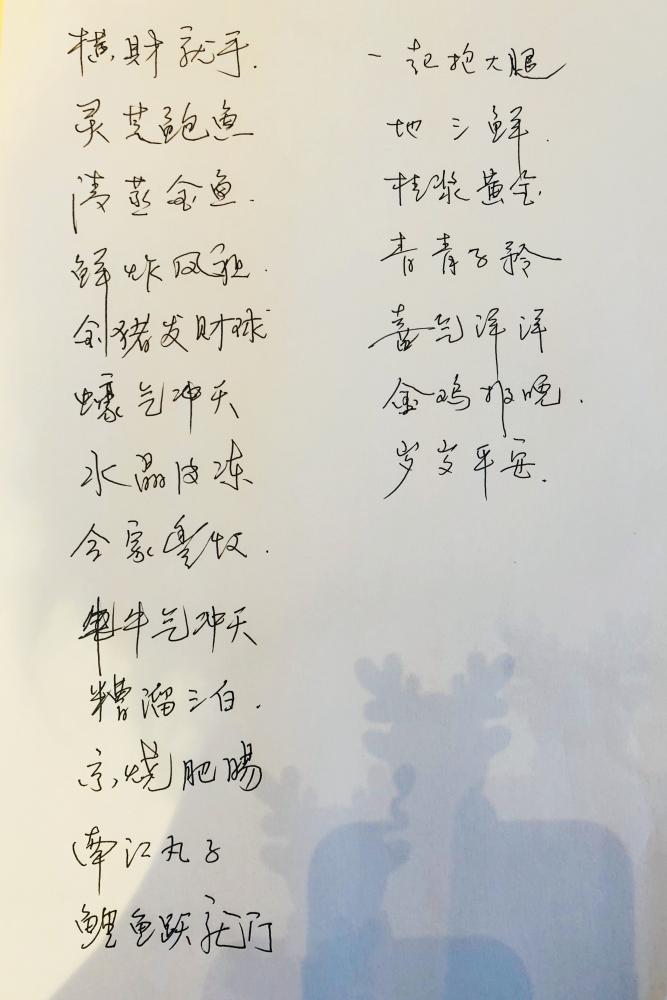 横财就手.
灵芝鲍鱼
清蒸金鱼.
鲜炸风.
金猪发财球
蠔气冲天
水晶皮冻
合家丰收.
牛气冲天
糟溜三白.
京烧肥肠
南江丸子
鲤鱼跃龙门
一起抱大腿
地三鲜.
桂浆黄金
青青子矜
喜气洋洋
金鸡报晓.
岁岁平安.